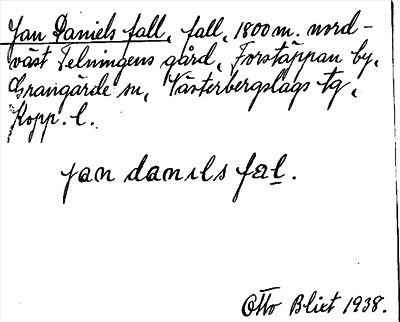 Jan Daniels fall, fall, 1800 m. nord-
väst Telningens gård, Forstäppan by,
Grangärde sn, Västerbergslags tg,
Kopp. l.
jan danıls fal.
Otto Blixt 1938.